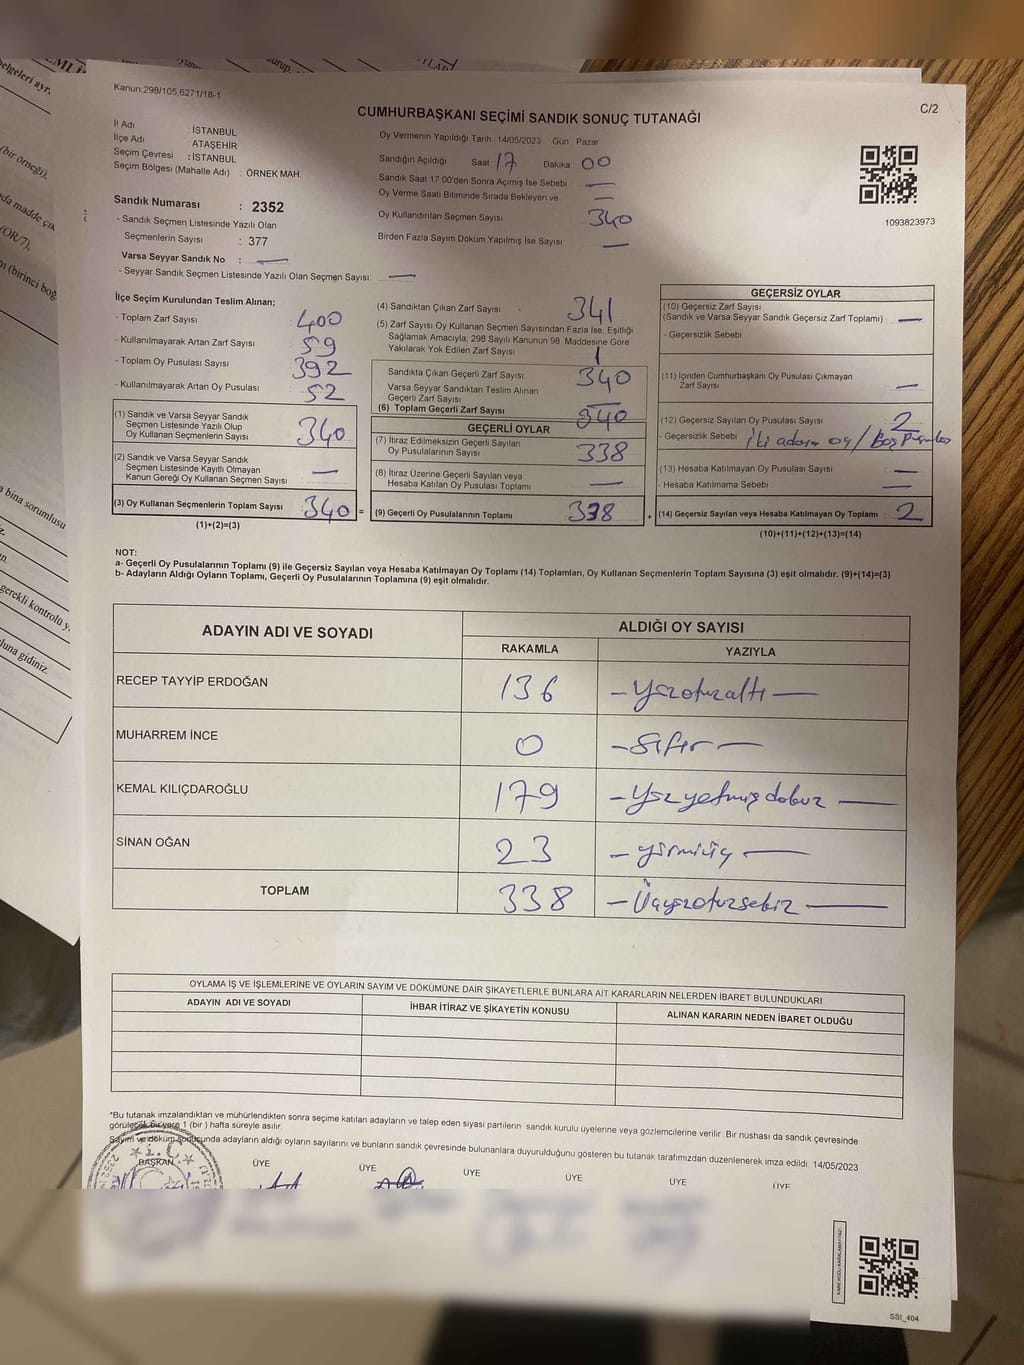 Kanun 298/105,6271/18-1
C/2
CUMHURBAŞKANI SEÇİMİ SANDIK SONUÇ TUTANAĞI
İl Adı : İSTANBUL
İlçe Adı : ATAŞEHİR
Seçim Çevresi : İSTANBUL
Seçim Bölgesi (Mahalle Adı) : ÖRNEK MAH.
Sandık Numarası : 2352
- Sandık Seçmen Listesinde Yazılı Olan
Seçmenlerin Sayısı : 377
Varsa Seyyar Sandık No : —
- Seyyar Sandık Seçmen Listesinde Yazılı Olan Seçmen Sayısı: —
Oy Vermenin Yapıldığı Tarih 14/05/2023 Gün Pazar
Sandığın Açıldığı Saat 17 Dakika 00
Sandık Saat 17:00'den Sonra Açımış İse Sebebi —
Oy Verme Saati Bitiminde Sırada Bekleyen ve —
Oy Kullandırılan Seçmen Sayısı 340
Birden Fazla Sayım Döküm Yapılmış İse Sayısı —
1093823973
İlçe Seçim Kurulundan Teslim Alınan;
- Toplam Zarf Sayısı : 400
- Kullanılmayarak Artan Zarf Sayısı : 59
- Toplam Oy Pusulası Sayısı : 392
- Kullanılmayarak Artan Oy Pusulası : 52
(1) Sandık ve Varsa Seyyar Sandık
Seçmen Listesinde Yazılı Olup
Oy Kullanan Seçmenlerin Sayısı : 340
(2) Sandık ve Varsa Seyyar Sandık
Seçmen Listesinde Kayıtlı Olmayan
Kanun Gereği Oy Kullanan Seçmen Sayısı : —
(3) Oy Kullanan Seçmenlerin Toplam Sayısı : 340 =
(1)+(2)=(3)
(4) Sandıktan Çıkan Zarf Sayısı : 341
(5) Zarf Sayısı Oy Kullanan Seçmen Sayısından Fazla İse, Eşitliği
Sağlamak Amacıyla, 298 Sayılı Kanunun 98. Maddesine Göre
Yakılarak Yok Edilen Zarf Sayısı : 1
Sandıkta Çıkan Geçerli Zarf Sayısı : 340
Varsa Seyyar Sandıktan Teslim Alınan
Geçerli Zarf Sayısı
(6) Toplam Geçerli Zarf Sayısı : 340
GEÇERLİ OYLAR
(7) İtiraz Edilmeksizin Geçerli Sayılan
Oy Pusulalarının Sayısı : 338
(8) İtiraz Üzerine Geçerli Sayılan veya
Hesaba Katılan Oy Pusulası Toplamı : —
(9) Geçerli Oy Pusulalarının Toplamı : 338 +
GEÇERSİZ OYLAR
(10) Geçersiz Zarf Sayısı
(Sandık ve Varsa Seyyar Sandık Geçersiz Zarf Toplamı) : —
- Geçersizlik Sebebi :
(11) İçinden Cumhurbaşkanı Oy Pusulası Çıkmayan
Zarf Sayısı : —
(12) Geçersiz Sayılan Oy Pusulası Sayısı : 2
- Geçersizlik Sebebi : İki adaya oy / Boş
(13) Hesaba Katılmayan Oy Pusulası Sayısı : —
- Hesaba Katılmama Sebebi : —
(14) Geçersiz Sayılan veya Hesaba Katılmayan Oy Toplamı : 2
(10)+(11)+(12)+(13)=(14)
NOT:
a- Geçerli Oy Pusulalarının Toplamı (9) ile Geçersiz Sayılan veya Hesaba Katılmayan Oy Toplamı (14) Toplamları, Oy Kullanan Seçmenlerin Toplam Sayısına (3) eşit olmalıdır. (9)+(14)=(3)
b- Adayların Aldığı Oyların Toplamı, Geçerli Oy Pusulalarının Toplamına (9) eşit olmalıdır.
ADAYIN ADI VE SOYADI
ALDIĞI OY SAYISI
RAKAMLA YAZIYLA
RECEP TAYYİP ERDOĞAN 136 — Yüzotuzaltı —
MUHARREM İNCE 0 — Sıfır —
KEMAL KILIÇDAROĞLU 179 — Yüzyetmişdokuz —
SİNAN OĞAN 23 — yirmiüç —
TOPLAM 338 — Üçyüzotuzsekiz —
OYLAMA İŞ VE İŞLEMLERİNE VE OYLARIN SAYIM VE DÖKÜMÜNE DAİR ŞİKAYETLERLE BUNLARA AİT KARARLARIN NELERDEN İBARET BULUNDUKLARI
ADAYIN ADI VE SOYADI İHBAR İTİRAZ VE ŞİKAYETİN KONUSU ALINAN KARARIN NEDEN İBARET OLDUĞU
*Bu tutanak imzalandıktan ve mühürlendikten sonra seçime katılan adayların ve talep eden siyasi partilerin sandık kurulu üyelerine veya gözlemcilerine verilir. Bir nushası da sandık çevresinde
görülebilir bir yere 1 (bir ) hafta süreyle asılır.
Sayım ve döküm sonucunda adayların aldığı oyların sayılarını ve bunların sandık çevresinde bulunanlara duyurulduğunu gösteren bu tutanak tarafımızdan düzenlenerek imza edildi. 14/05/2023
BAŞKAN ÜYE ÜYE ÜYE ÜYE ÜYE ÜYE
T.C.
SSI_404